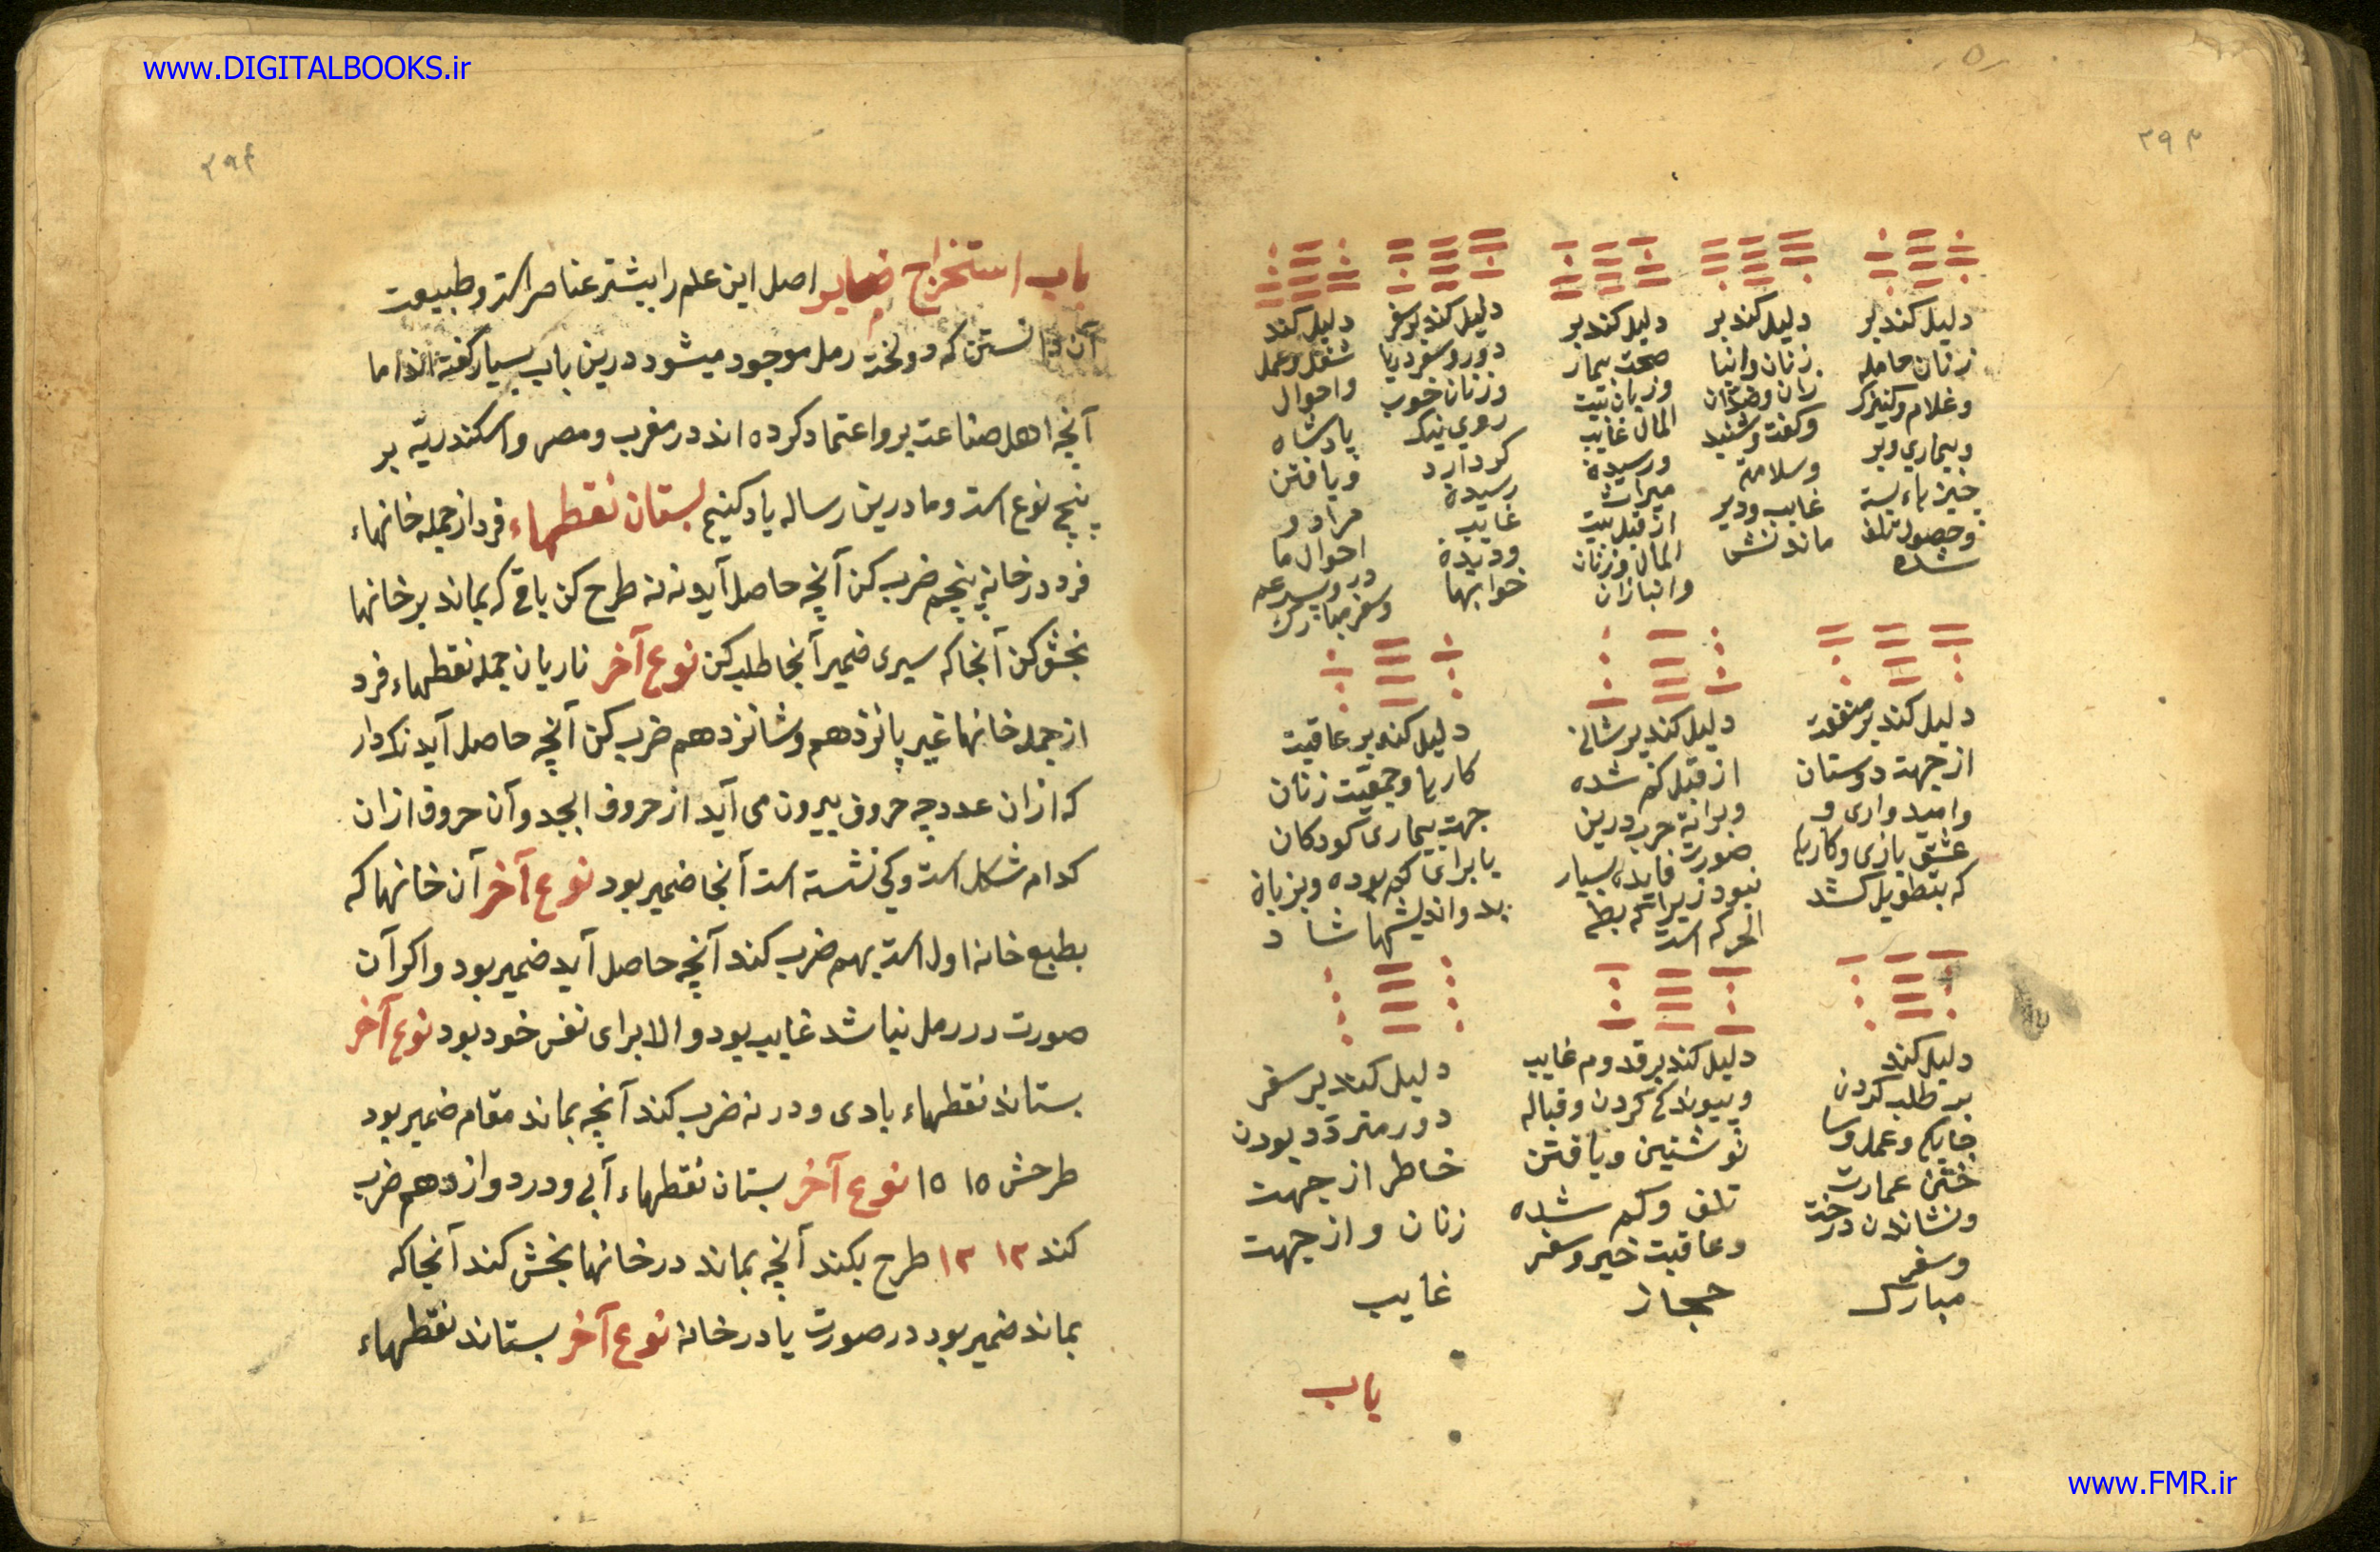 www.DIGITALBOOKS.ir
۲۹۳
دلیل کند بر
زنان حامله
و غلام و کنیزک
و بیماری و بر
چیز
و حصول تلف
شده
دلیل کند بر
زنان و انبا
زان و
و گفت و شنید
و سلامة
غایب و دیر
ماندنش
دلیل کند بر
صحت بیمار
و زیان بیت
المال غایب
و رسیدن
میراث
از قبل بیت
المال و زنان
و انبازان
دلیل کند بر سفر
دور و سفر دریا
و زنان خوب
روی نیک
کردارد
رسیدن
غایب
و دیدن
خوابها
دلیل کند
شغل و عمل
و احوال
پادشاه
و یافتن
مراد و
احوال ما
در و پدر
و سفر مبارک
دلیل کند بر منفعت
از جهت دوستان
و امیدواری و
عشق بازی و کارها
که بتطویل کشد
دلیل کند بر
از قبل کم شده
و برانة حرب درین
صورت فایده بسیار
نبود زیرا که بطئ
الحرکه است
دلیل کند بر عاقبت
کارها و جمعیت زنان
جهت بیماری کودکان
یا برای کم بوده و
بد و اندیشها
دلیل کند
بر طلب کردن
و عمل و سا
ختن عمارت
و نشاندن درخت
و سفر
مبارک
دلیل کند بر قدوم غایب
و پیوند کم کردن و قباله
نوشتین و یافتن
تلف و کم شده
و عاقبت خیر و سفر
حجاز
دلیل کند بر سفر
دور متردد بودن
خاطر از جهت
زنان و از جهت
غایب
باب
۲۹۴
باب استخراج ضمایر اصل این علم را بیشتر عناصر است و طبیعت
آن دانستن که دو لخت رمل موجود میشود درین باب بسیار گفته اند اما
آنچه اهل صناعت برو اعتماد کرده اند در مغرب و مصر و اسکندریّه بر
پنج نوع است و ما درین رساله یاد کنیم بستان نقطهاء فرد از جمله خانهاء
فرد در خانه پنجم ضرب کن آنچه حاصل آید نه نه طرح کن باقی که بماند بر خانها
بخش کن آنجا که سپری ضمیر آنجا طلب کن نوع آخر ناریان جمله نقطهاء فرد
از جمله خانها غیر پانزدهم و شانزدهم ضرب کن آنچه حاصل آید نکدار
که ازان عدد چه حروف بیرون می آید از حروف ابجد و آن حروف ازان
کدام شکل است و کی نشسته است آنجا ضمیر بود نوع آخر آن خانها که
بطبع خانه اول است بهم ضرب کند آنچه حاصل آید ضمیر بود و اکر آن
صورت در رمل نباشد غایب بود و الا برای نفس خود بود نوع آخر
بستاند نقطهاء بادی و در نه ضرب کند آنچه بماند مقام ضمیر بود
طرحش ۱۵ ۱۵ نوع آخر بستان نقطهاء آبی و در دوازدهم ضرب
کند ۱۲ ۱۲ طرح بکند آنچه بماند در خانها بخش کند آنجا که
بماند ضمیر بود در صورت یا در خانه نوع آخر بستاند نقطهاء
www.FMR.ir